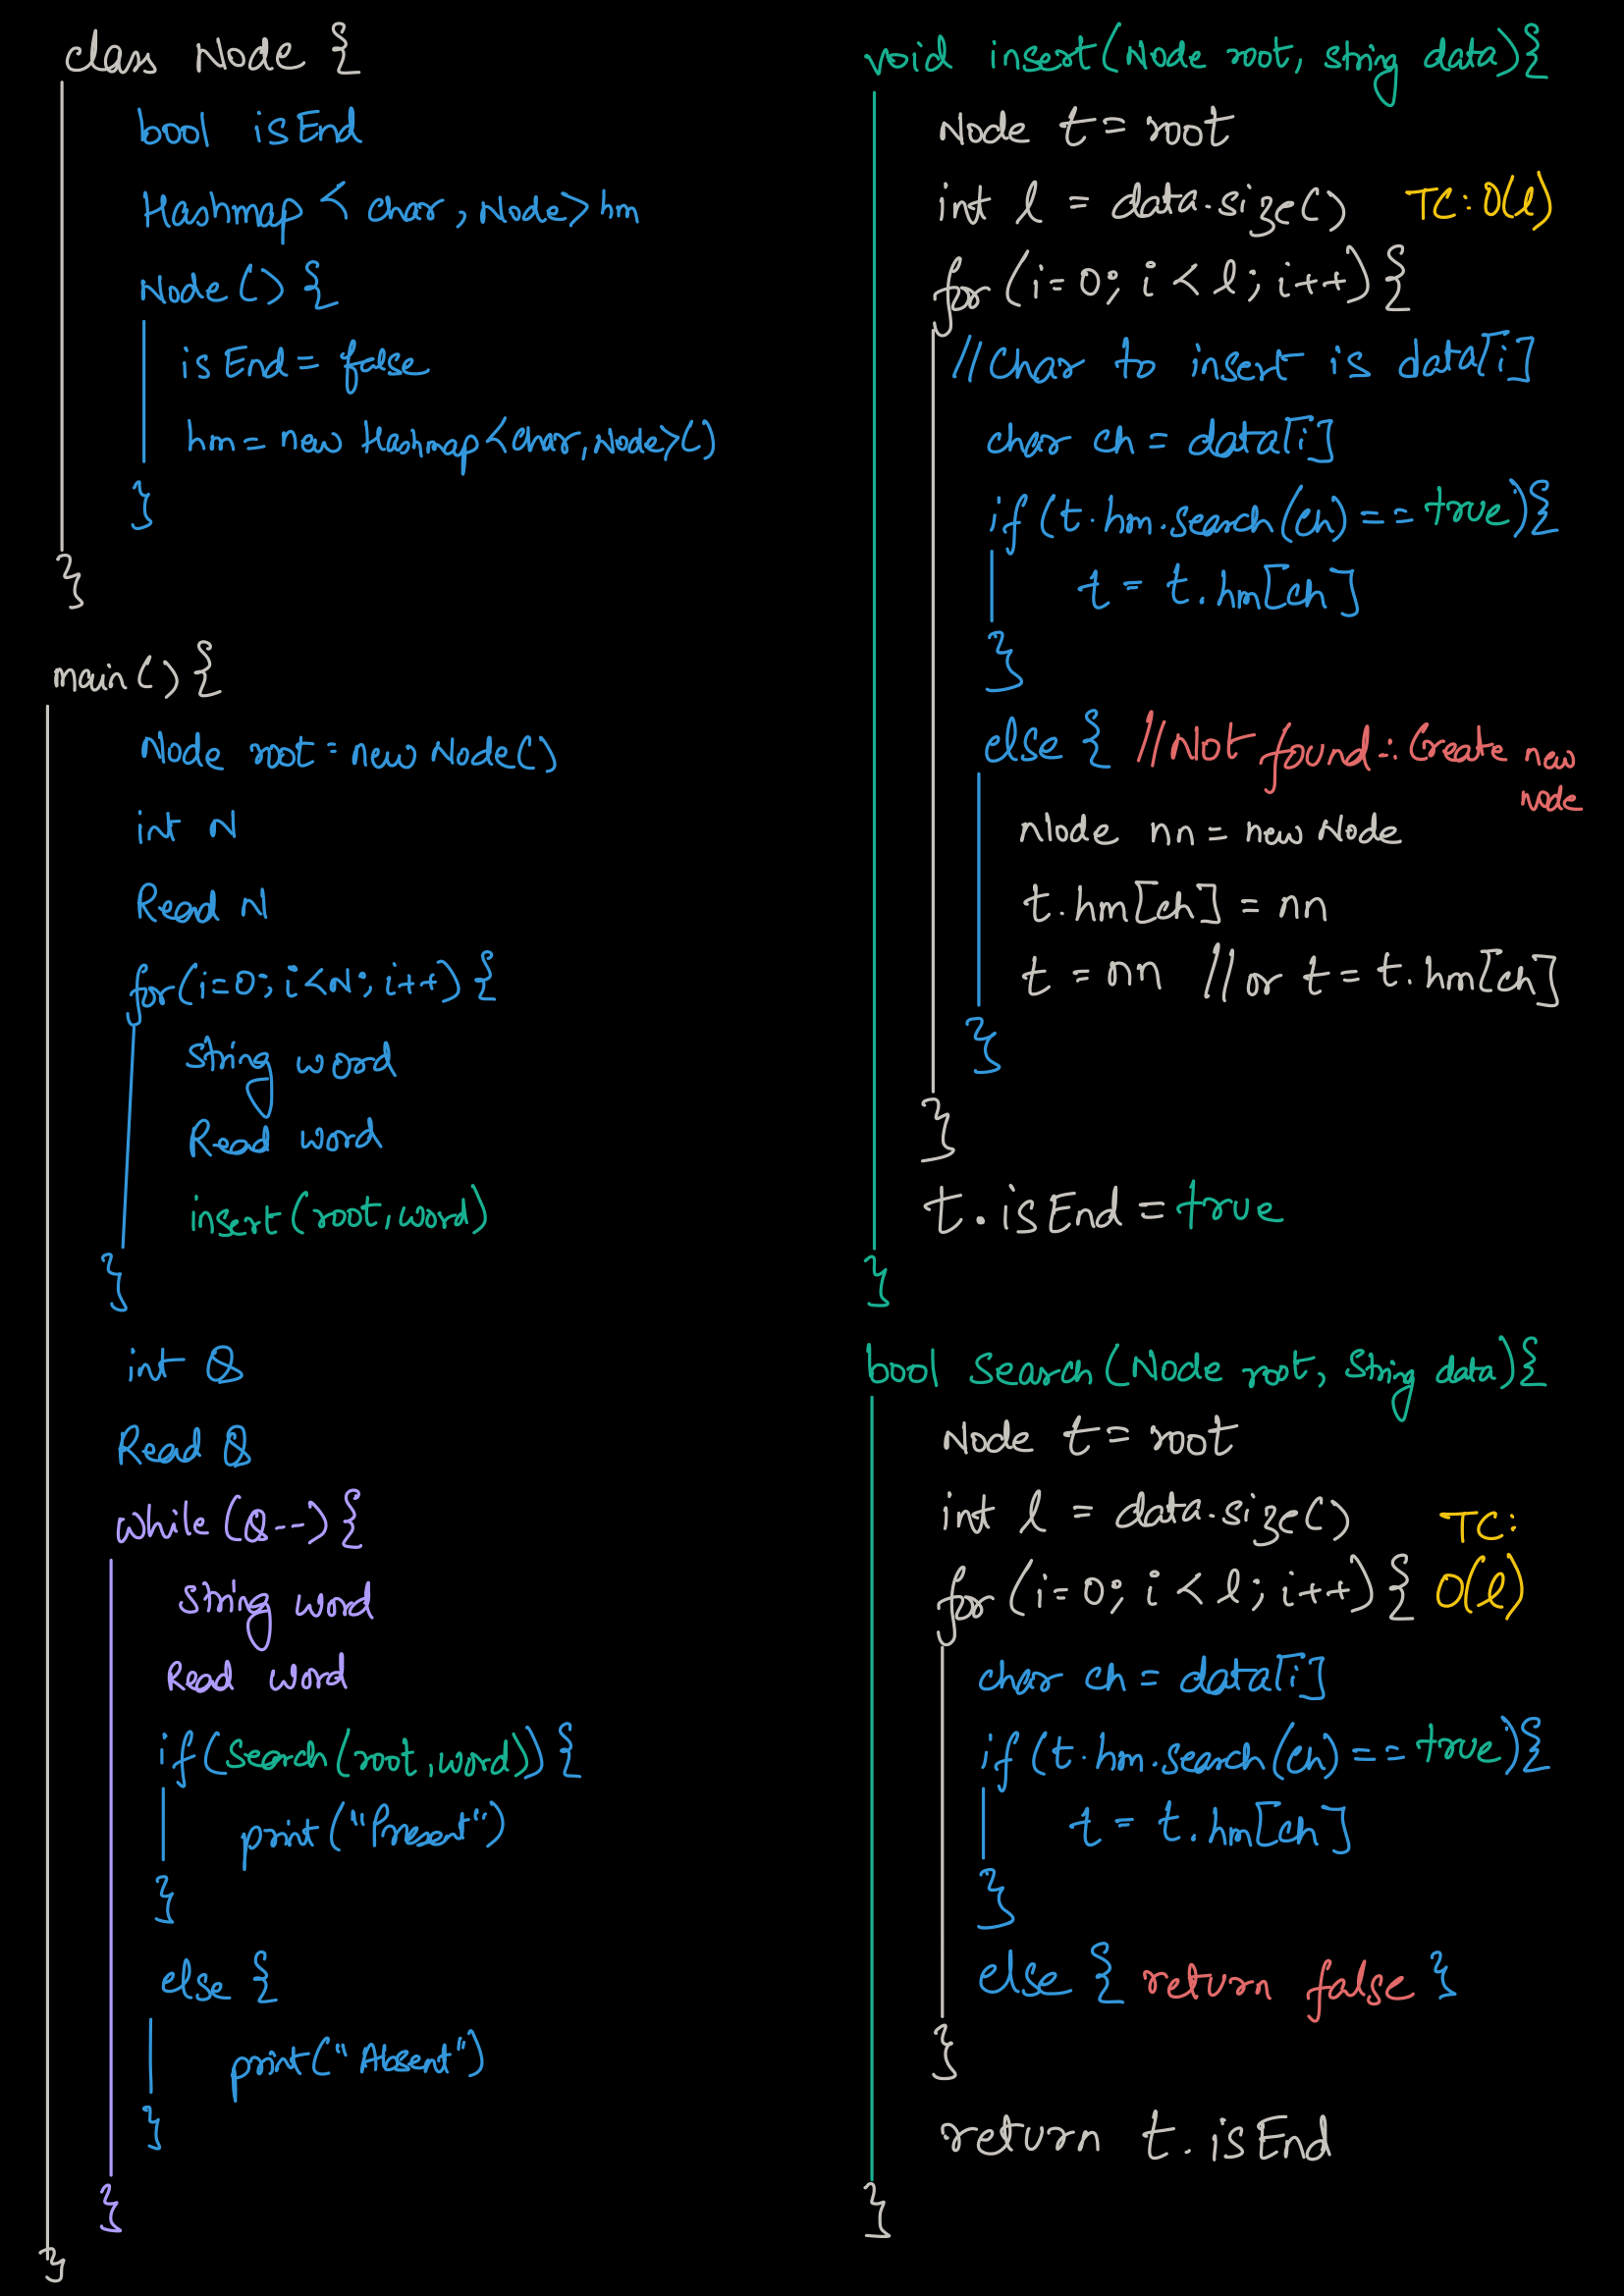 class Node {
bool isEnd
Hashmap < char, Node> hm
Node() {
isEnd = false
hm = new Hashmap<char, Node>()
}
}
main() {
Node root = new Node()
int N
Read N
for(i=0; i<N; i++) {
String word
Read word
insert(root, word)
}
int Q
Read Q
while(Q--) {
String word
Read word
if(search(root, word)) {
print("Present")
}
else {
print("Absent")
}
}
}
void insert(Node root, string data){
Node t = root
int l = data.size() TC: O(l)
for (i=0; i<l; i++) {
//Char to insert is data[i]
char ch = data[i]
if (t.hm.search(ch) == true){
t = t.hm[ch]
}
else { //Not found ∴ Create new
node
Node nn = new Node
t.hm[ch] = nn
t = nn //or t = t.hm[ch]
}
}
t.isEnd = true
}
bool Search(Node root, String data){
Node t = root
int l = data.size() TC:
for (i=0; i<l; i++) { O(l)
char ch = data[i]
if (t.hm.search(ch) == true){
t = t.hm[ch]
}
else { return false }
}
return t.isEnd
}